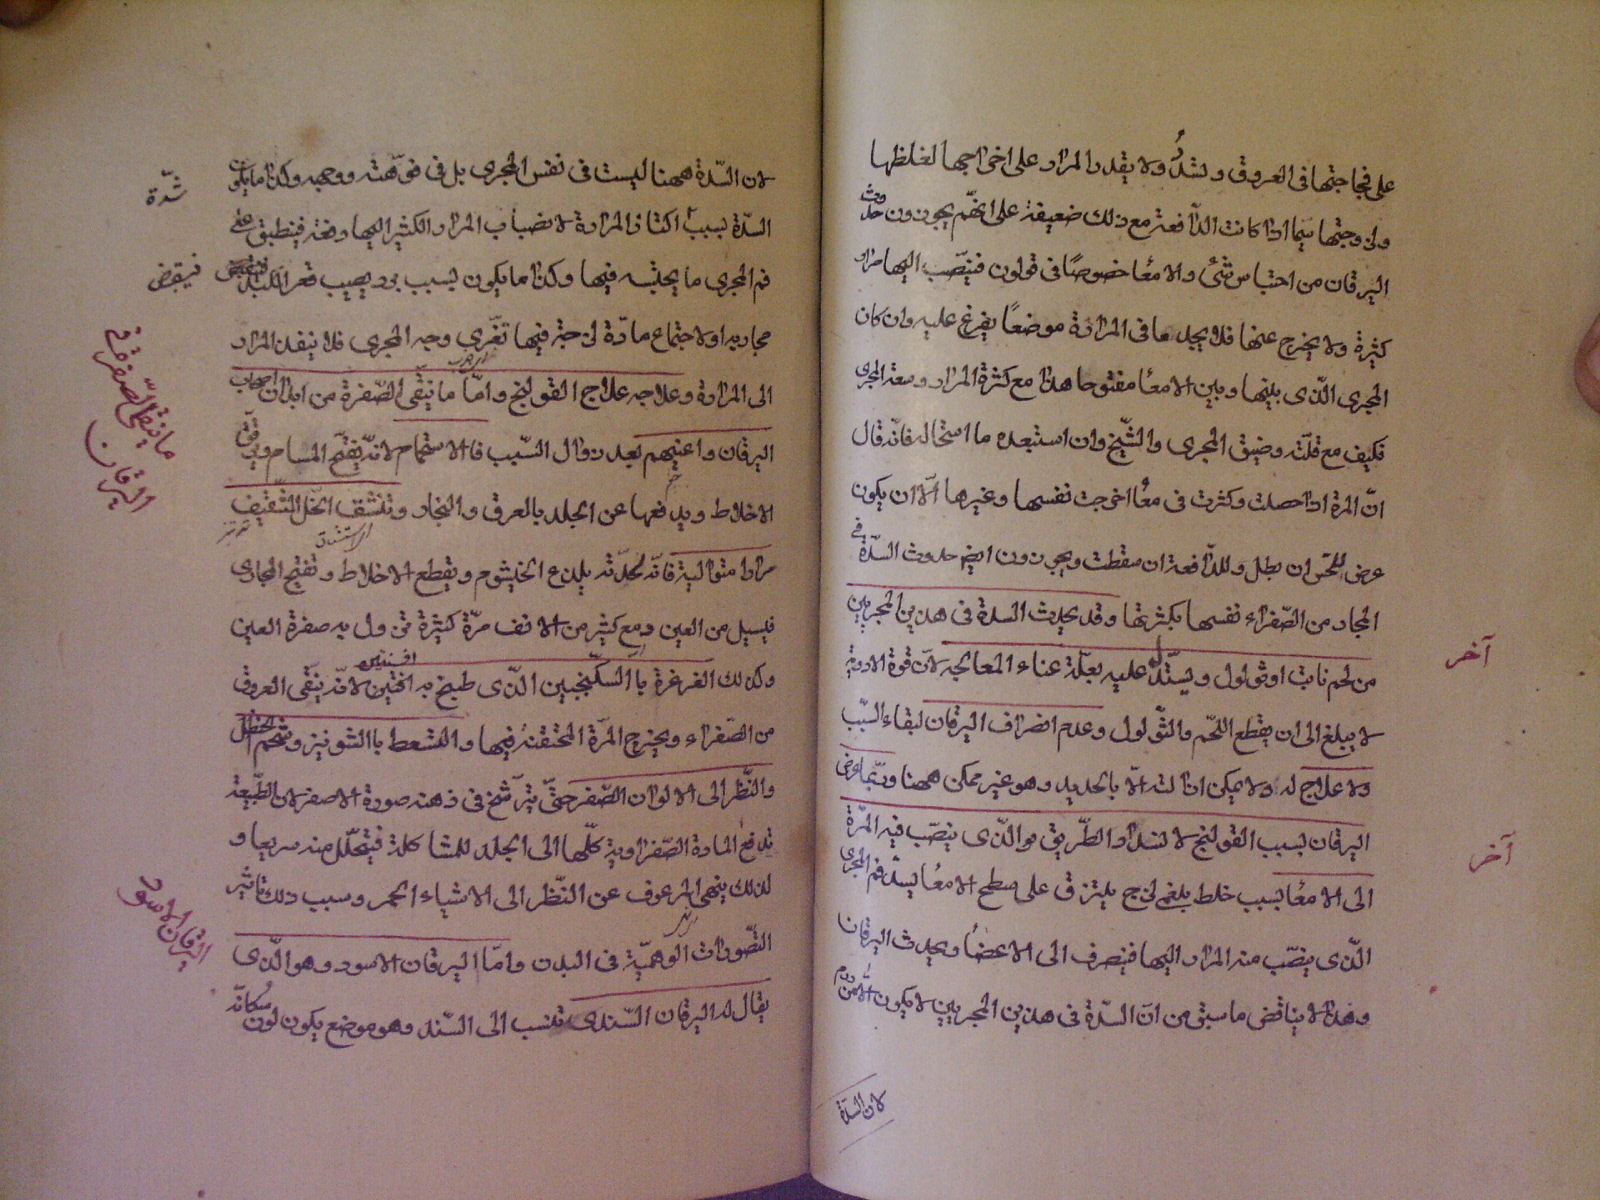 على فجاجتها فى العروق وتشتدّ ولا يقدر المرار على اخراجها لغلظها
ولزوجتها سيما اذا كانت الدّافعة مع ذلك ضعيفة على انهّم يجوزون حدوث
اليرقان من احتباس شئ والامعا خصوصًا فى قولون فينصّب اليها مرار
كثيرة ولا يخرج عنها فلا يجد ما فى المرارة موضعًا يفرغ عليه وان كان
المجرى الّذى بينها وبين الامعا مفتوحا هذا مع كثرة المرار وسعة المجرى
فكيف مع قلّته وضيق المجرى والشّيخ وان استبعده ما استحاله فانّه قال
انّ المرة اذا حصلت وكثرت فى معًا اخرجت نفسها وغيرها الّا ان يكون
عرض للحّس ان بطل وللدّافعة ان سقطت ويجوزون ايضا حدوث السدّة فى
المجار من الصّفراء نفسها بكثرتها وقد يحدث السدة فى هذين المجريين
من لحم نابت او ثولول ويستدّل عليه بعلّة عناء المعالجه لانّ قوة الادوية
لا يبلغ الى ان يقطع اللحّم والثّولول وعدم انصراف اليرقان لبقاء السبّب
ولا علاج له ولا يمكن ازالته الّا بالحديد وهو غير ممكن ههنا وربّما يعرض
اليرقان بسبب القولنج لانسداد الطّريق هو الّذى ينصّب فيه المرّة
الى الامعا بسبب خلط بلغمى لزج يلتزق على سطح الامعا يسدّ فم المجرى
الّذى ينصّب منه المرار اليها فينصرف الى الاعضاء ويحدث اليرقان
وهذا لا يناقض ما سبق من انّ السدّة فى هذين المجريين لا يكون
آخر
آخر
لان السدّة
لان السّدة ههنا ليست فى نفس المجرى بل فى فوّهته ووجهه وكذا ما يكون
السدّة بسبب اكتناز المرارة لانصباب المرار الكثير اليها دفعة فينطبق على
فم المجرى ما يحتبس فيها وكذا ما يكون بسبب برد يصيب قعر الكبد فينقبض
مجاريه او لاجتماع مادّة لزجة فيها تغّرى وجه المجرى فلا ينفذ المرار
الى المرارة وعلاجه علاج القولنج وامّا ما ينقّى الصّفرة من ابدان اصحاب
اليرقان واعينهم بعد زوال السّبب فالاستحمام لانّه يفتّح المسام ويرقّق
الاخلاط ويدفعها عن الجلد بالعرق والبخار وتنشق الخّل الثّقيف
مرارا متوالية فانّه لحدّته يلدغ الخيشوم ويقطع الاخلاط وتفتح المجارى
فيسيل من العين ومع كثير من الانف مرّة كثيرة تزول به صفرة العين
وكذلك الغرغرة بالسّكنجبين الّذى طبخ به افسنتين لانّه ينقّى العروق
من الصّفراء ويخرج المرّة المحتقنة فيها والتسّعط بالشونيز وشحم الحنظل
والنّظر الى الالوان الصّفر حتّى يترّشخ فى ذهنه صورة الاصفر لان الطّبيعة
تدفع المادة الصّفراوية كلّها الى الجلد للمشاكلة فيتحلّل منه سريعا و
لذلك ينهى المرعوف عن النّظر الى الاشياء الحمر وسبب ذلك تاثير
التّصورات الوهميّة فى البدن وامّا اليرقان الاسود وهو الّذى
يقال له اليرقان السّندى تنسب الى السّند وهو موضع يكون لون سكانه
شدّة
فينقبض
ما ينقى الصّفرة
اليرقان
اليرقان الاسود